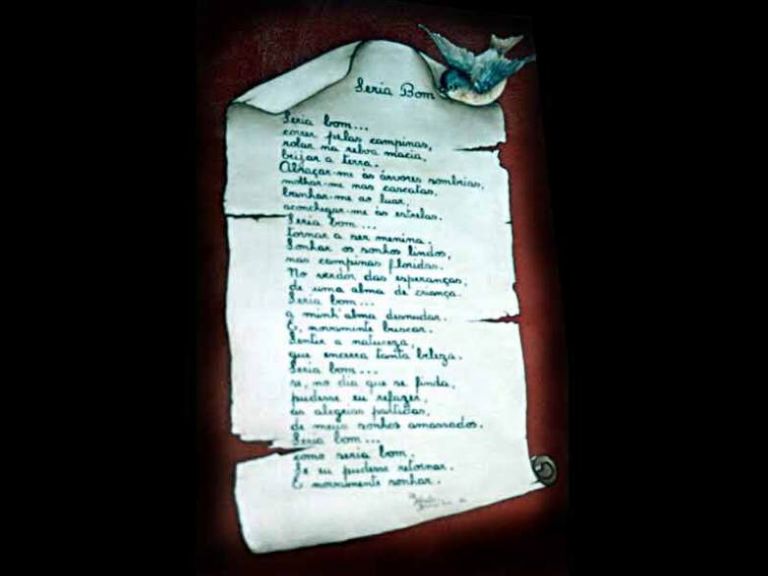 Seria Bom
Seria bom...
correr pelas campinas,
rolar na relva macia,
beijar a terra.
Abraçar-me às árvores sombrias,
molhar-me nas cascatas,
banhar-me ao luar,
aconchegar-me às estrelas.
Seria bom...
tornar a ser menina,
Sonhar os sonhos lindos,
nas campinas floridas.
No verdor das esperanças,
de uma alma de criança.
Seria bom...
a minh'alma desnudar.
E, novamente buscar.
Sentir a natureza,
que encerra tanta beleza.
Seria bom...
se, no dia que se finda,
pudesse eu refazer,
as alegrias partidas,
de meus sonhos amassados.
Seria bom...
como seria bom.
Se eu pudesse retornar.
E novamente sonhar.